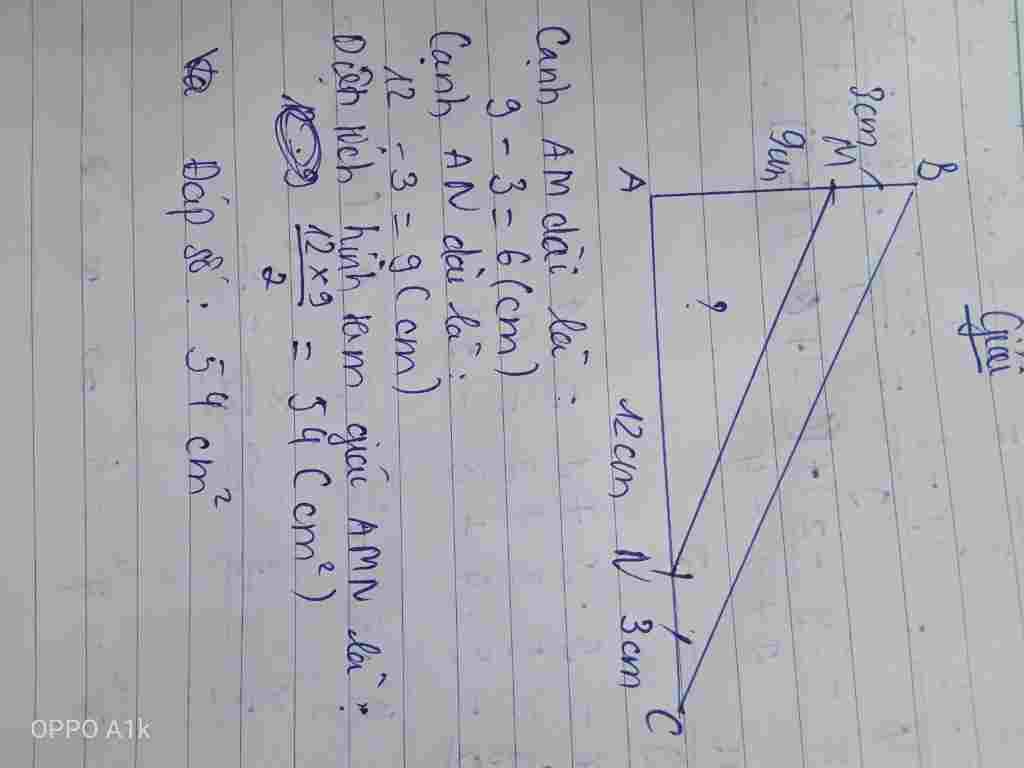 Giải
B
3cm
M
9cm
A
?
12cm N 3cm
C
Cạnh AM dài là :
9 - 3 = 6 (cm)
Cạnh AN dài là :
12 - 3 = 9 (cm)
Diện tích hình tam giác AMN là :
12 x 9 / 2 = 54 (cm²)
Đáp số : 54 cm²
OPPO A1k